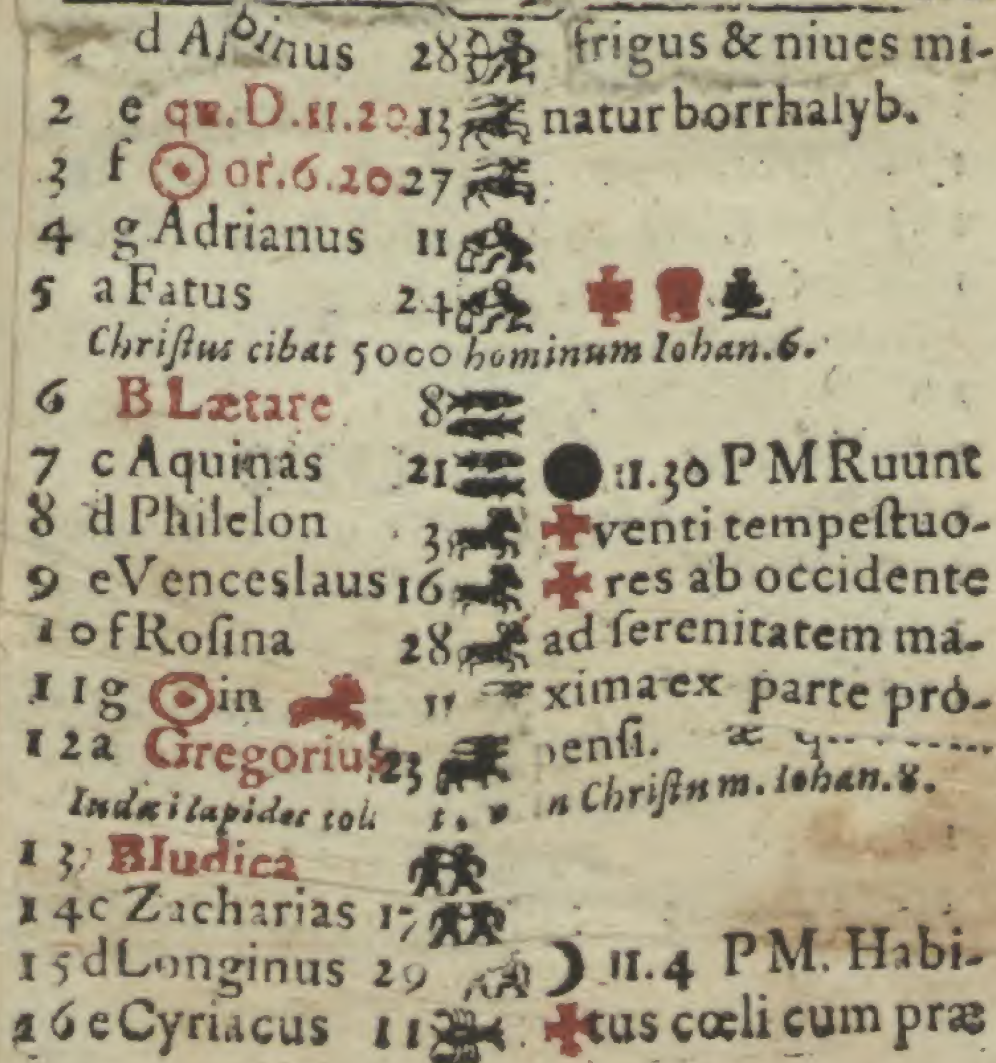 d Albinus 28 frigus & niues mi-
2 e qu. D. 11.20. 13 natur borrhalyb.
3 f ☉ or. 6.20. 27
4 g Adrianus 11
5 a Fatus 24
Chriſtus cibat 5000 hominum Iohan. 6.
6 B Lætare 8
7 c Aquinas 21 11.30 P M Ruunt
8 d Philelon 3 venti tempeſtuo-
9 e Venceslaus 16 res ab occidente
10 f Roſina 28 ad ſerenitatem ma-
11 g ☉ in 11 xima ex parte pro-
12 a Gregorius 23 penſi.
Iudæi lapides n Chriſtum. Iohan. 8.
13 B Iudica
14 c Zacharias 17
15 d Longinus 29 ☽ 11.4 P M. Habi-
16 e Cyriacus 11 tus cœli cum præ